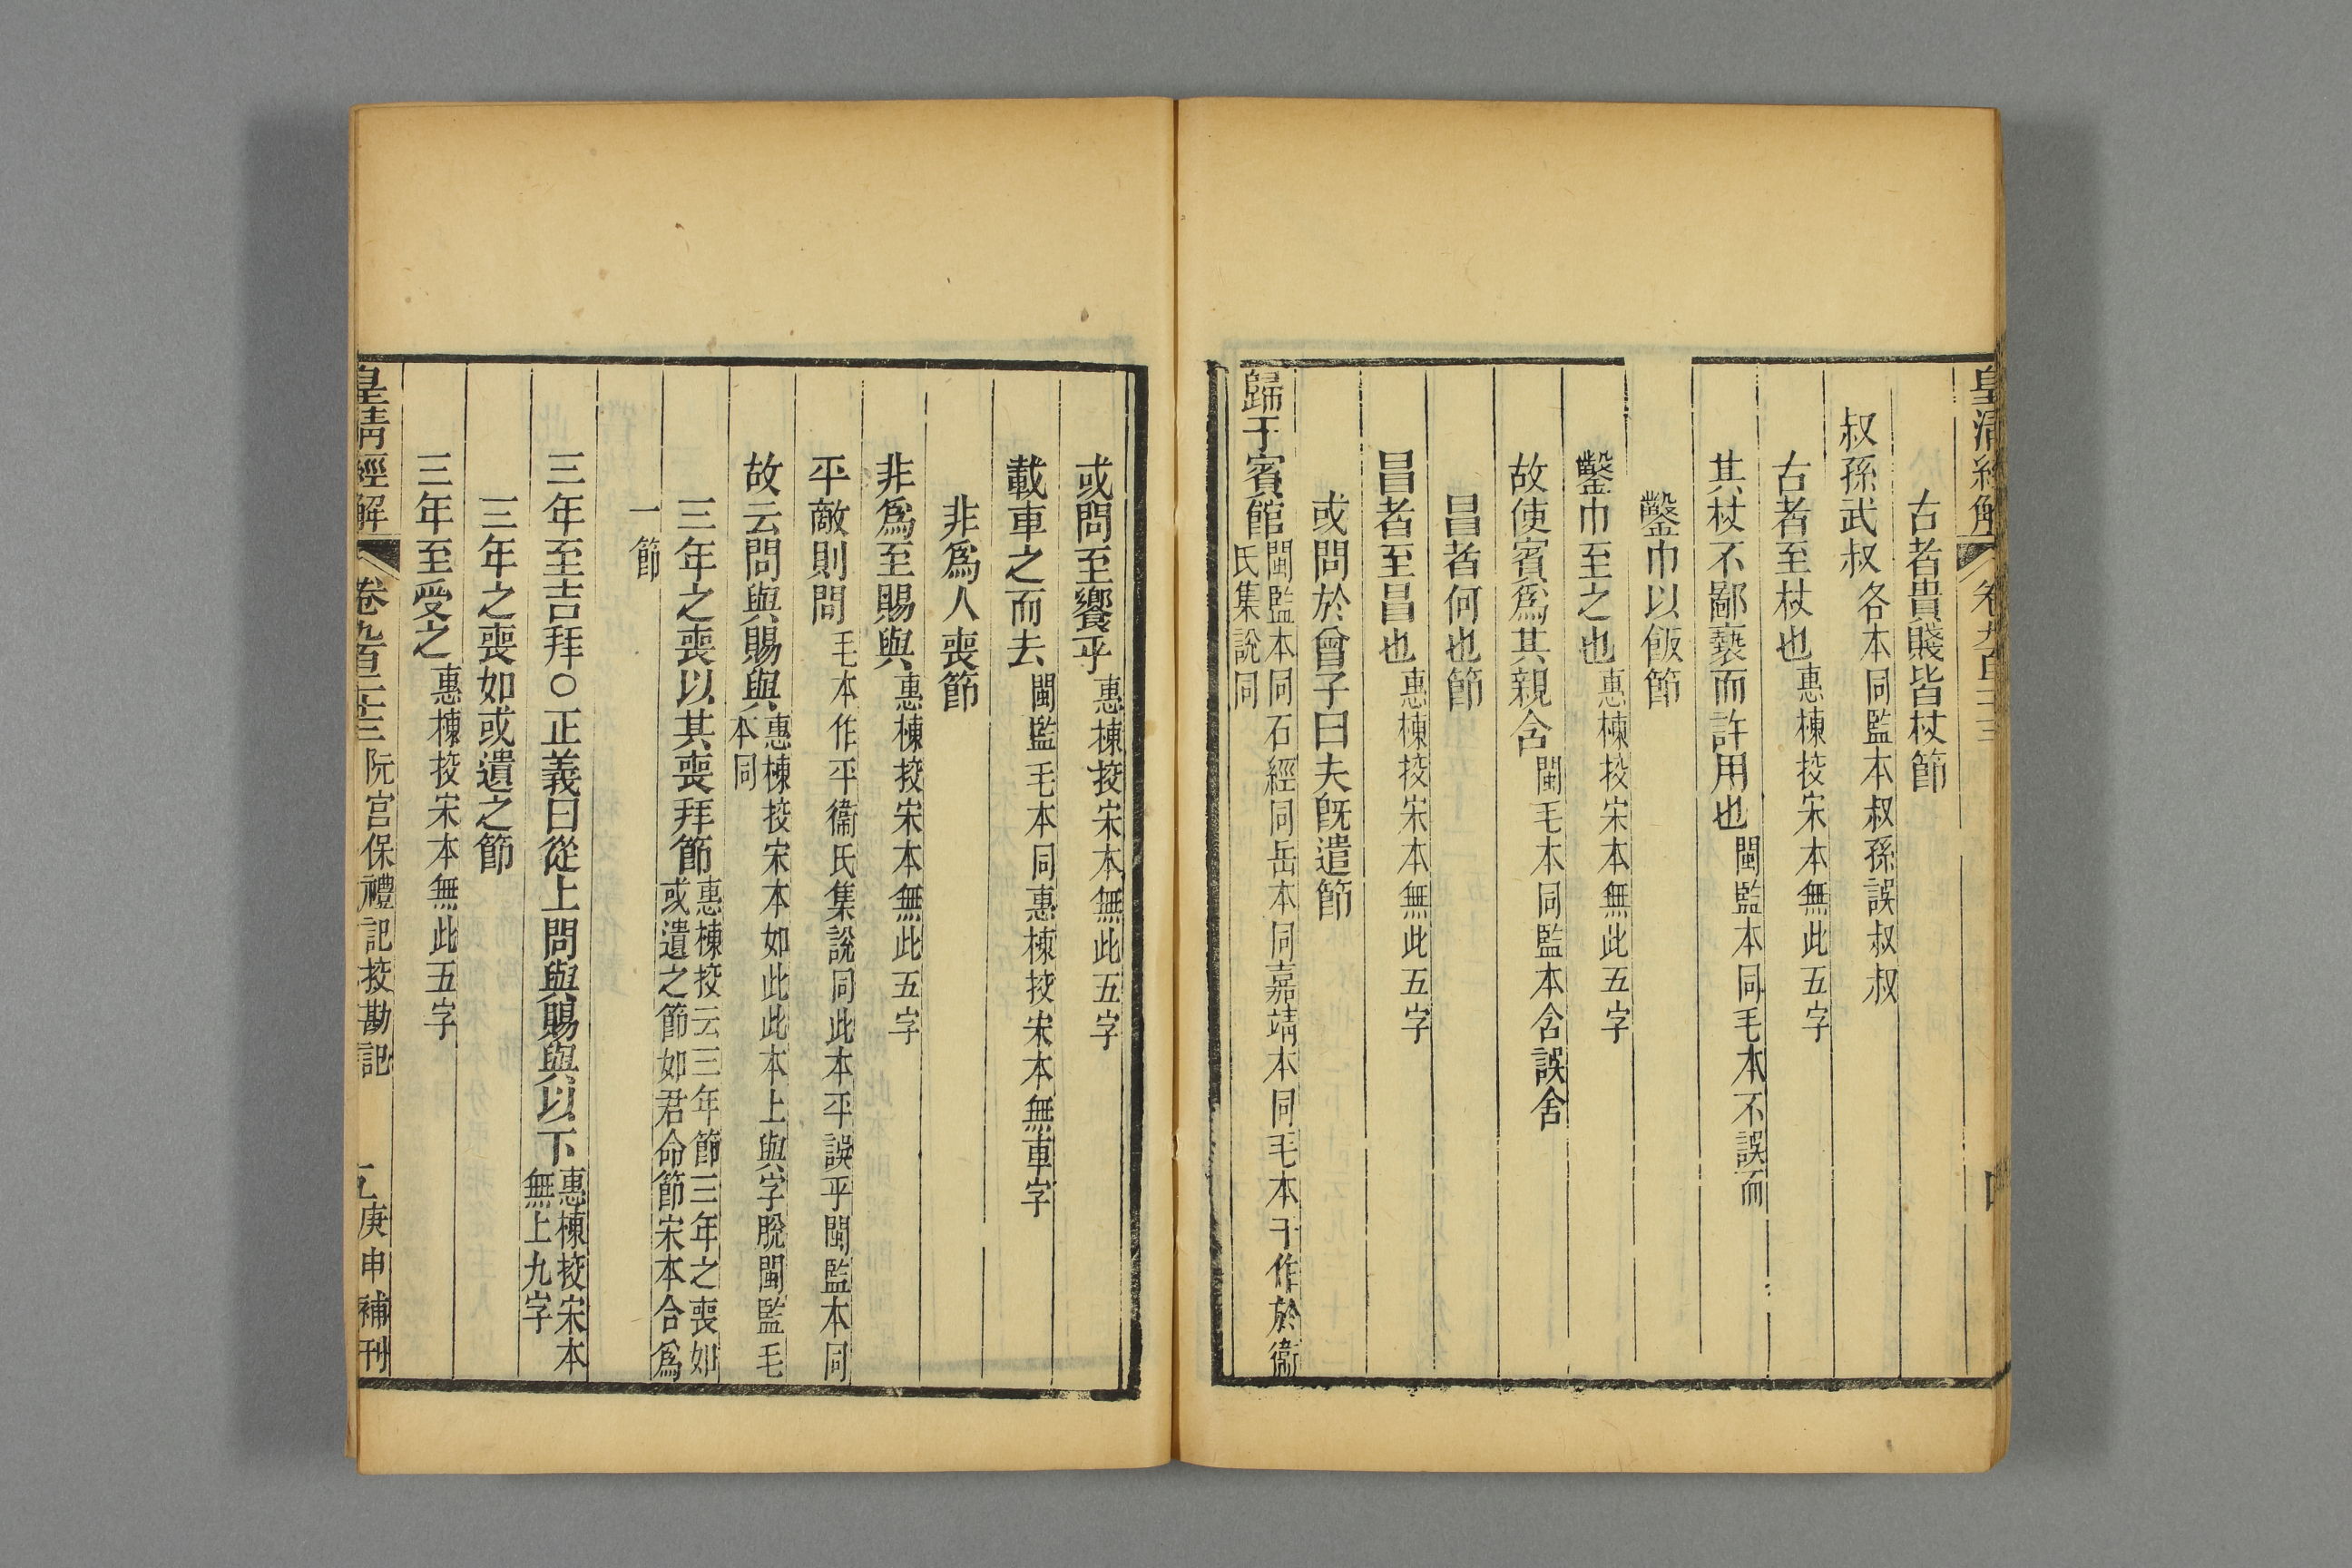 皇清經解 卷九百三十三 四
古者貴賤皆杖節
叔孫武叔 各本同監本叔孫誤叔叔
古者至杖也 惠棟挍宋本無此五字
其杖不鄙褻而許用也 閩監本同毛本不誤而
鑿巾以飯節
鑿巾至之也 惠棟挍宋本無此五字
故使賓爲其親含 閩毛本同監本含誤舍
冒者何也節
冒者至冒也 惠棟挍宋本無此五字
或問於曾子曰夫旣遣節
歸于賓館 閩監本同石經同岳本同嘉靖本同毛本于作於衞
氏集說同
或問至饗乎 惠棟挍宋本無此五字
載車之而去 閩監毛本同惠棟挍宋本無車字
非爲人喪節
非爲至賜與 惠棟挍宋本無此五字
平敵則問 毛本作平衞氏集說同此本平誤乎閩監本同
故云問與賜與 惠棟挍宋本如此此本上與字脫閩監毛
本同
三年之喪以其喪拜節 惠棟挍云三年節三年之喪如
或遺之節如君命節宋本合爲
一節
三年至吉拜○正義曰從上問與賜與以下 惠棟挍宋本
無上九字
三年之喪如或遺之節
三年至受之 惠棟挍宋本無此五字
皇清經解 卷九百三十三 阮宮保禮記挍勘記 五 庚申補刊